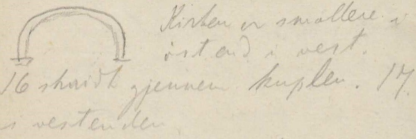 Kirken er smallere i
öst end i vest.
16 skridt gjennem kuplen. 17.
i vestenden